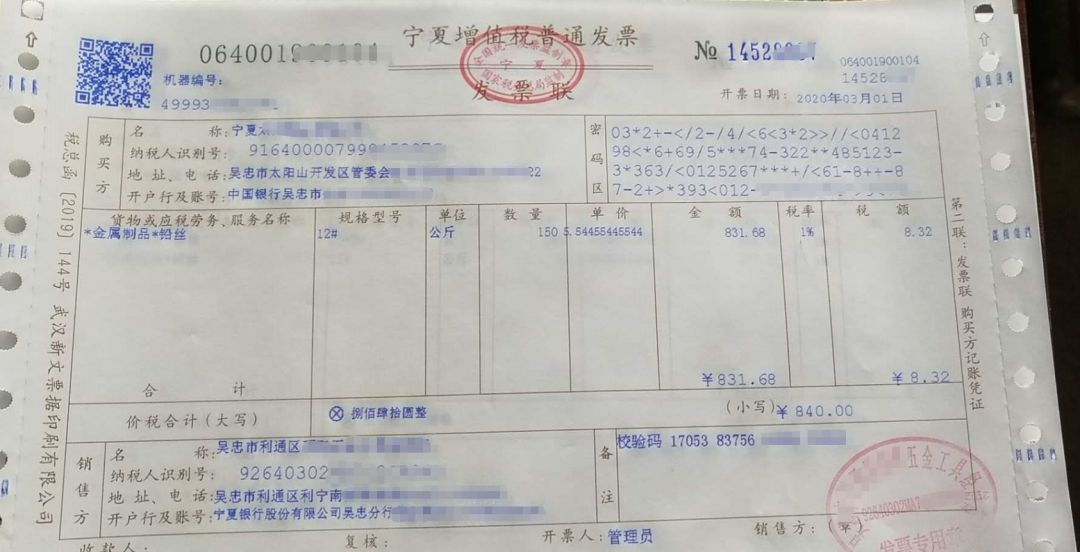 宁夏增值税普通发票
发票联
全国统一发票监制章
宁夏
国家税务总局监制
064001
机器编号:
49993
№ 14528
064001900104
14528
开票日期: 2020年03月01日
税总函〔2019〕144号 武汉新文票据印刷有限公司
购买方
名 称: 宁夏
纳税人识别号: 9164000079
地 址、电 话: 吴忠市太阳山开发区管委会 22
开户行及账号: 中国银行吴忠市
密码区
03*2+-</2-/4/<6<3*2>>//<0412
98<*6+69/5***74-322**485123-
3*363/<0125267***+/<61-8++-8
7-2+>*393<012-
货物或应税劳务、服务名称 规格型号 单位 数 量 单 价 金 额 税率 税 额
*金属制品*铅丝 12# 公斤 150 5.54455445544 831.68 1% 8.32
合 计 ¥831.68 ¥8.32
价税合计(大写) ⊗ 捌佰肆拾圆整 (小写) ¥840.00
第二联:发票联 购买方记账凭证
销售方
名 称: 吴忠市利通区
纳税人识别号: 92640302
地 址、电 话: 吴忠市利通区利宁南
开户行及账号: 宁夏银行股份有限公司吴忠分行
备注
校验码 17053 83756
五金工具
92640302MA7
发票专用章
收款人: 复核: 开票人: 管理员 销售方:(章)